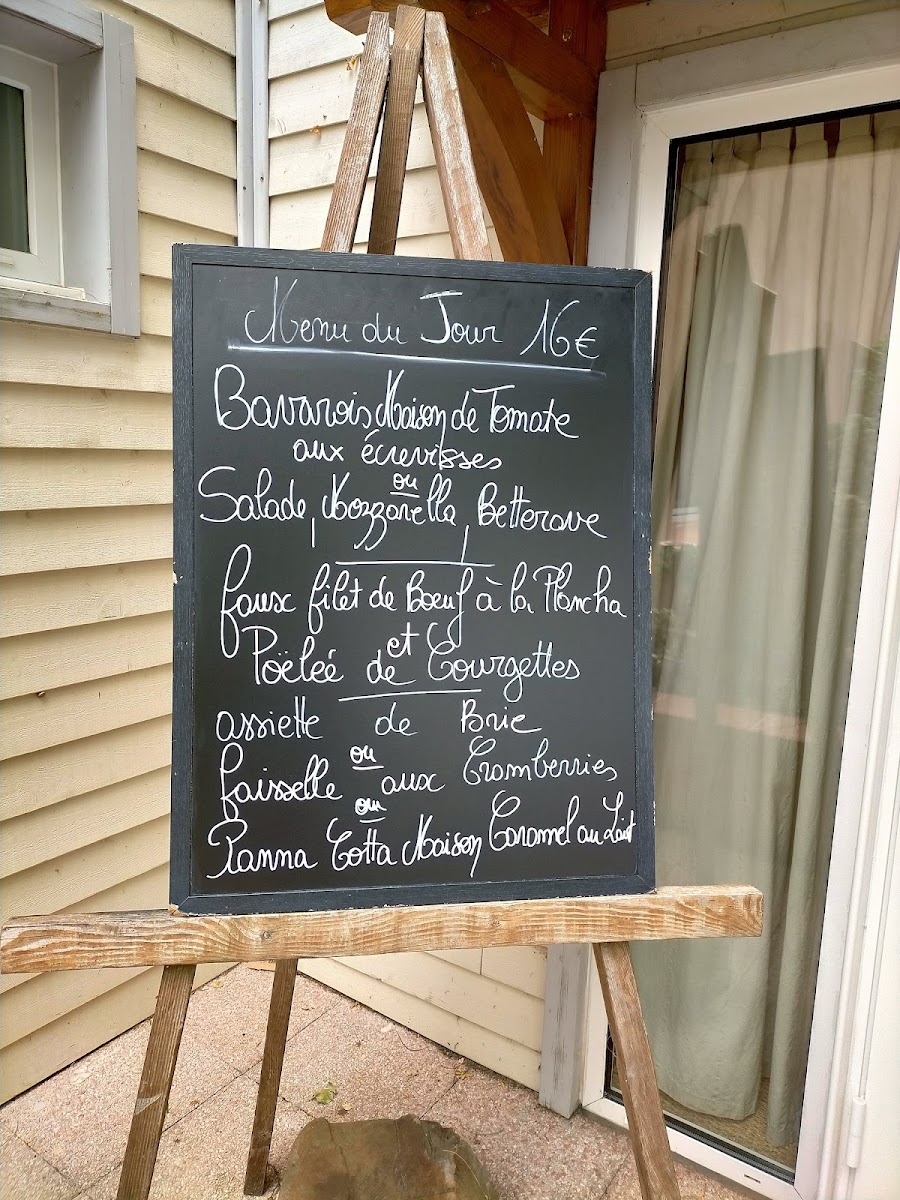 Menu du Jour 16€
Bavarois Maison de Tomate
aux écrevisses
ou
Salade, Mozzarella, Betterave
faux filet de Boeuf à la Plancha
et
Poëleé de Courgettes
assiette de Brie
ou
faisselle aux Cramberries
ou
Panna Cotta Maison Caramel au Lait